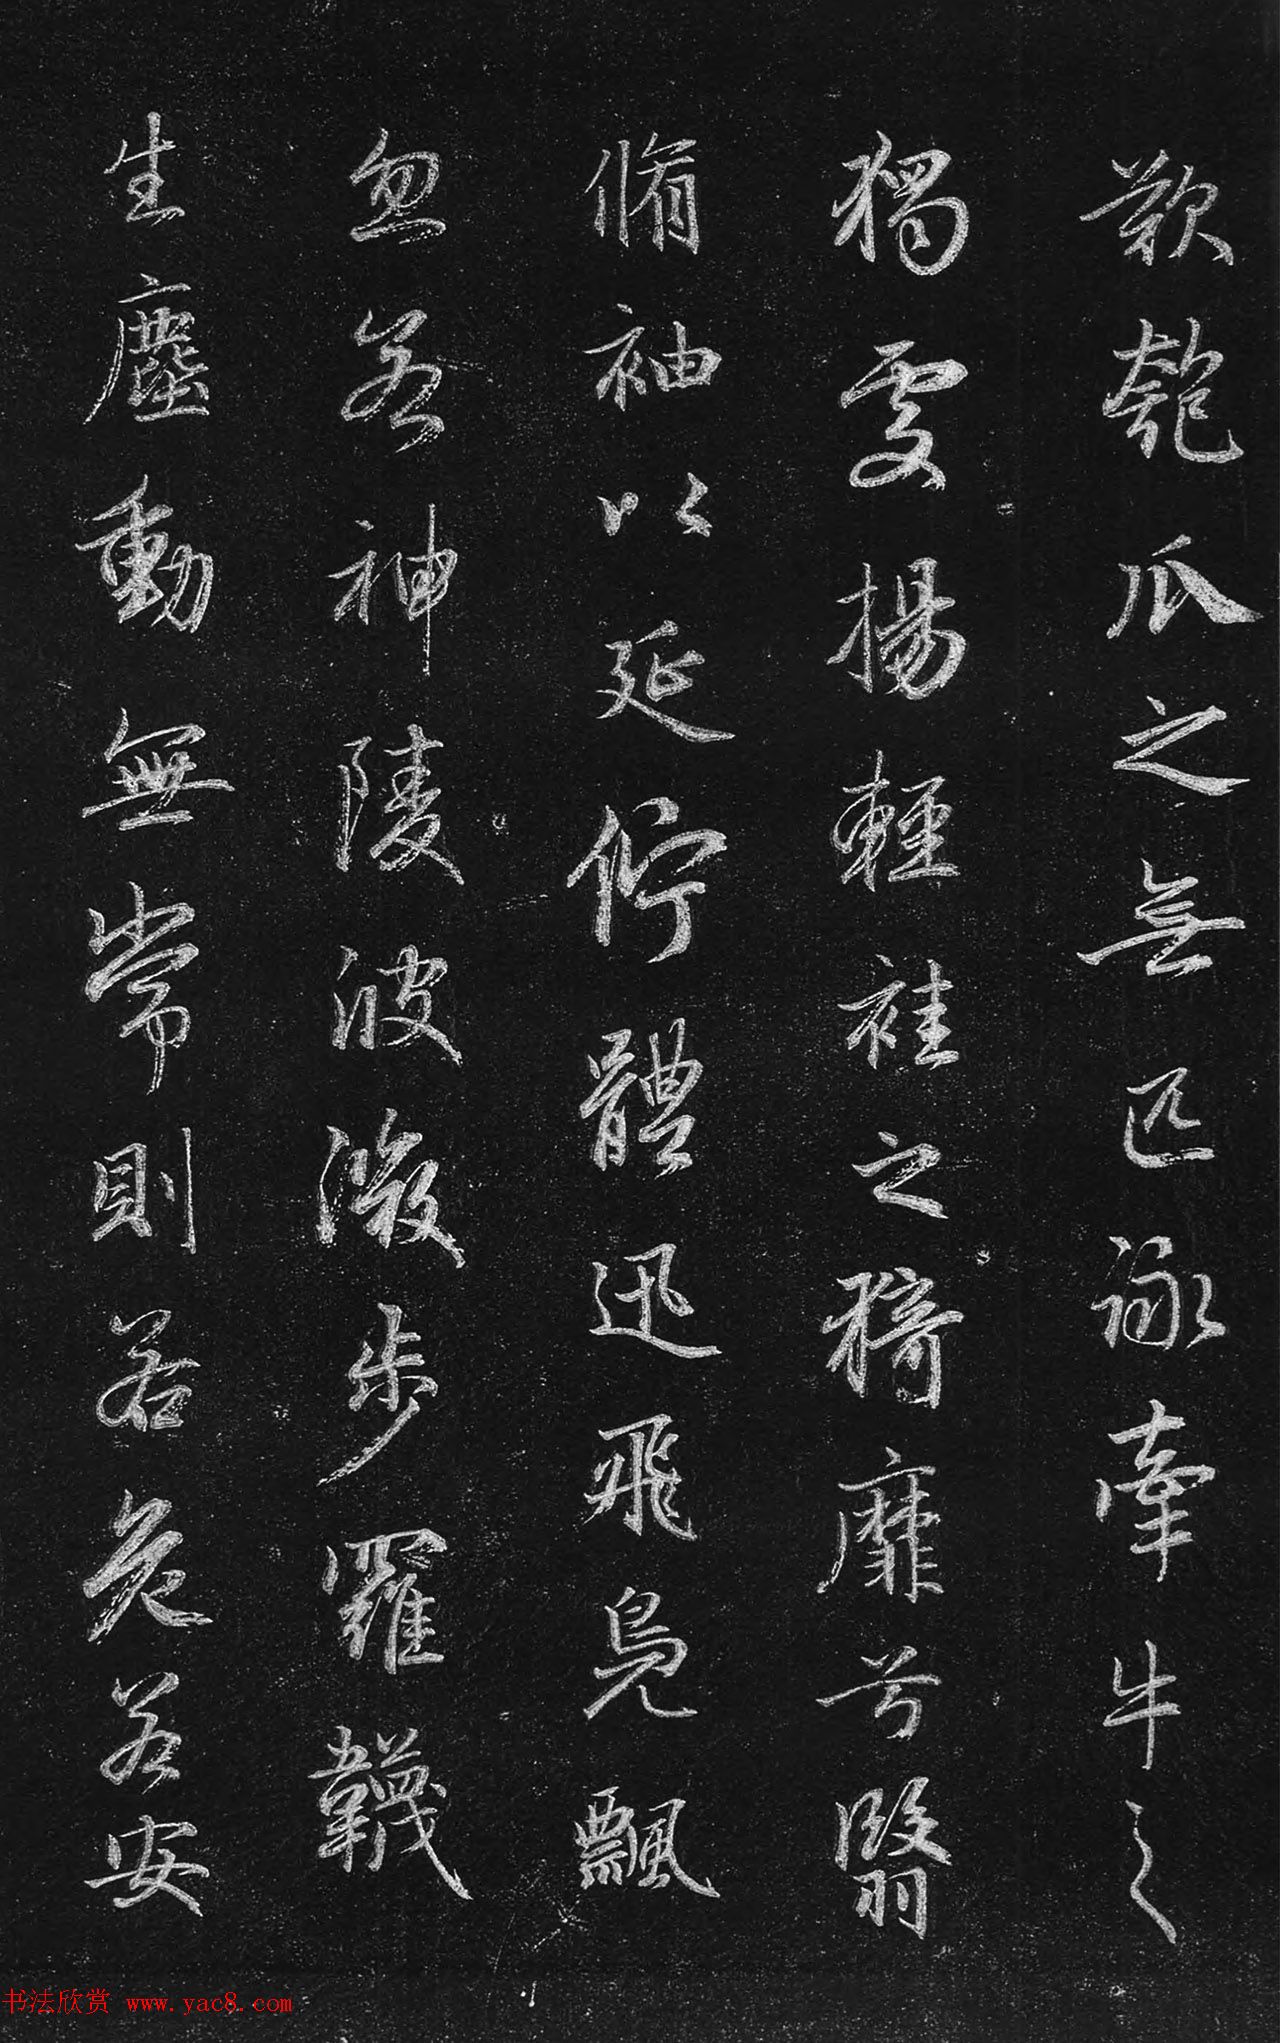 歎匏瓜之無匹詠牽牛之
獨處揚輕袿之猗靡兮翳
脩袖以延佇體迅飛鳧飄
忽若神陵波微步羅韈
生塵動無常則若危若安
书法欣赏 www.yac8.com